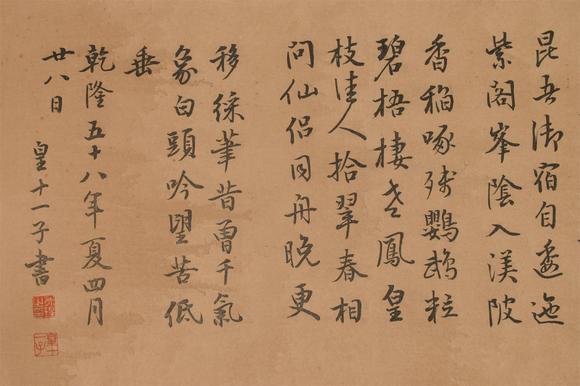 昆吾御宿自逶迤
紫閣峯陰入渼陂
香稻啄殘鸚鵡粒
碧梧棲老鳳皇
枝佳人拾翠春相
問仙侶同舟晚更
移綵筆昔曾干氣
象白頭吟望苦低
垂
乾隆五十八年夏四月
廿八日
皇十一子書